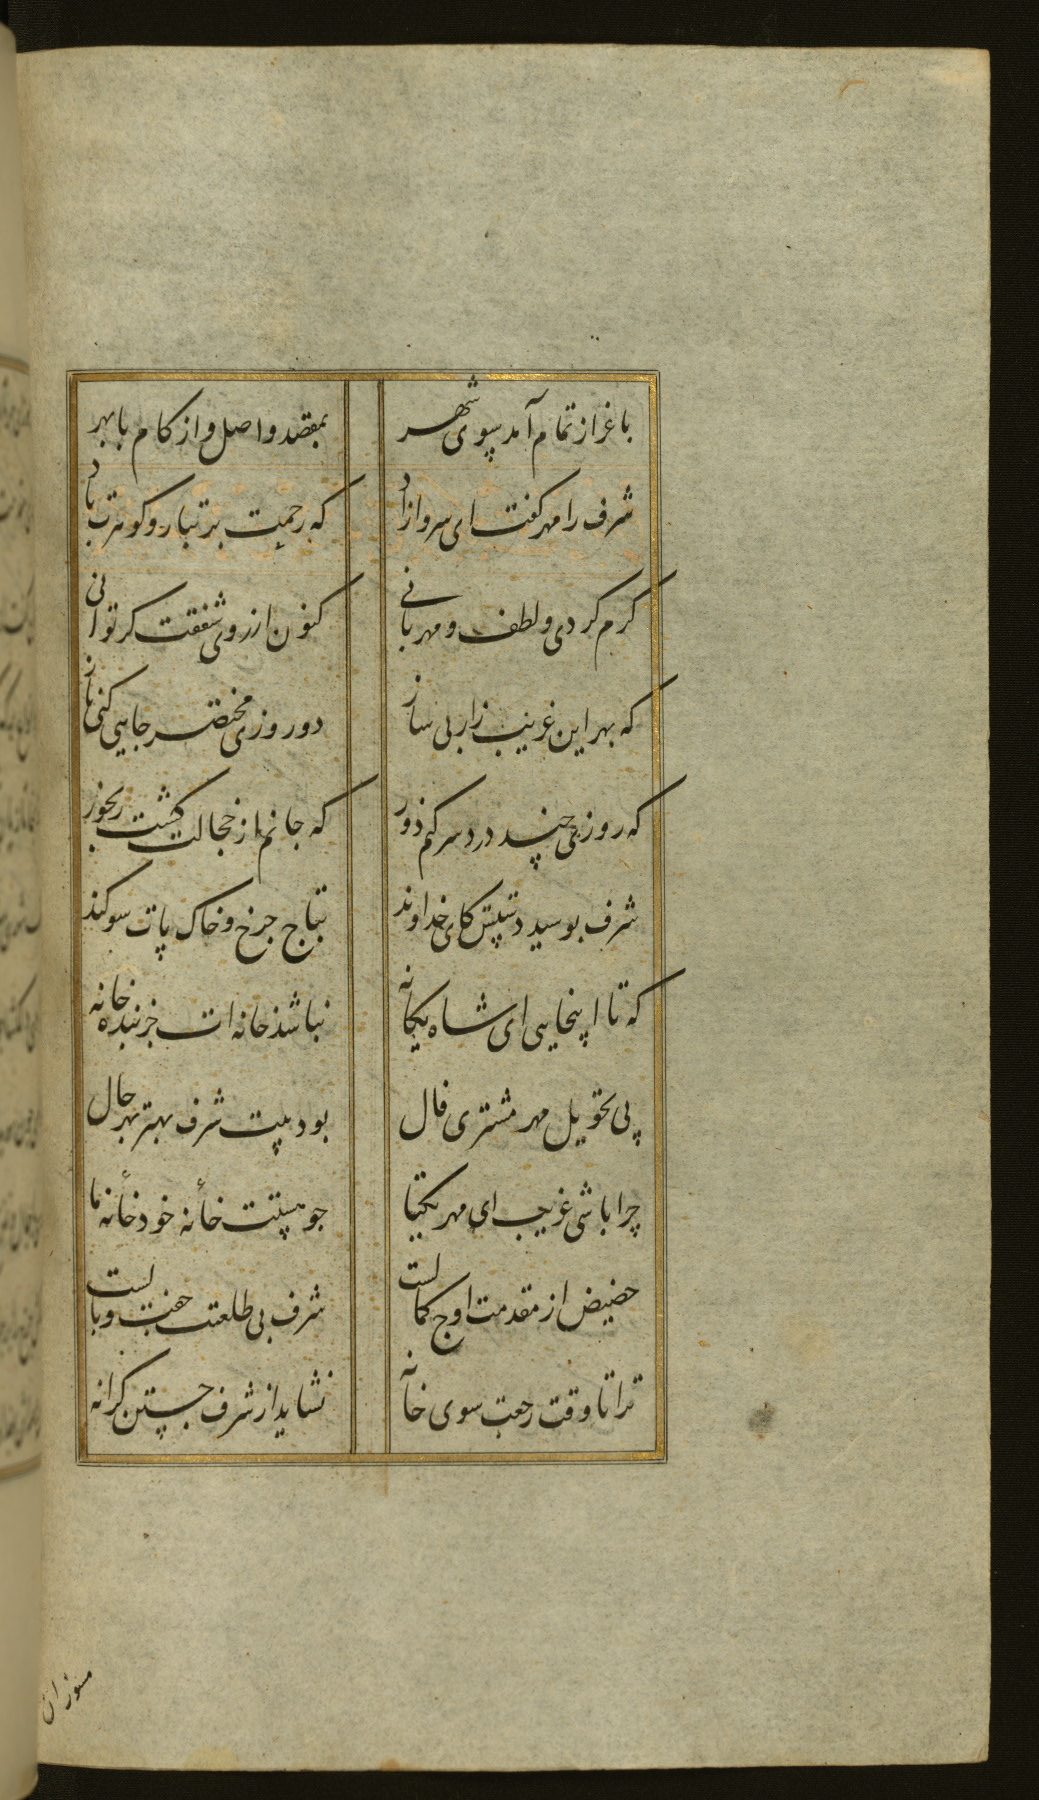 باغراز تمام آمد بسوی شهر
بمقصد واصل و از کام با بهر
شرف را مهر گفت ای سرو ازاد
که رحمت بر تبار و گوهرت باد
کرم کردی و لطف و مهربانی
کنون از روی شفقت کر توانی
که بهر این غریب زار بی ساز
دو روزی مختصر جایی کنی باز
که روزی چند درد سر کنم دور
که جانم از خجالت گشت رنجور
شرف بوسید دستش کای خداوند
بتاج چرخ و خاک پات سوکند
که تا اینجایی ای شاه یکانه
نباشد خانه ات جز بنده خانه
پی تحویل مهر مشتری فال
بود بیت شرف بهتر بهر حال
چرا باشی غریب ای مهر یکتا
جو هستت خانهٔ خود خانهٔ ما
حضیض از مقدمت اوج کمالست
شرف بی طلعتت جفت وبالست
ترا تا وقت رجعت سوی خانه
نشاید از شرف جستن کرانه